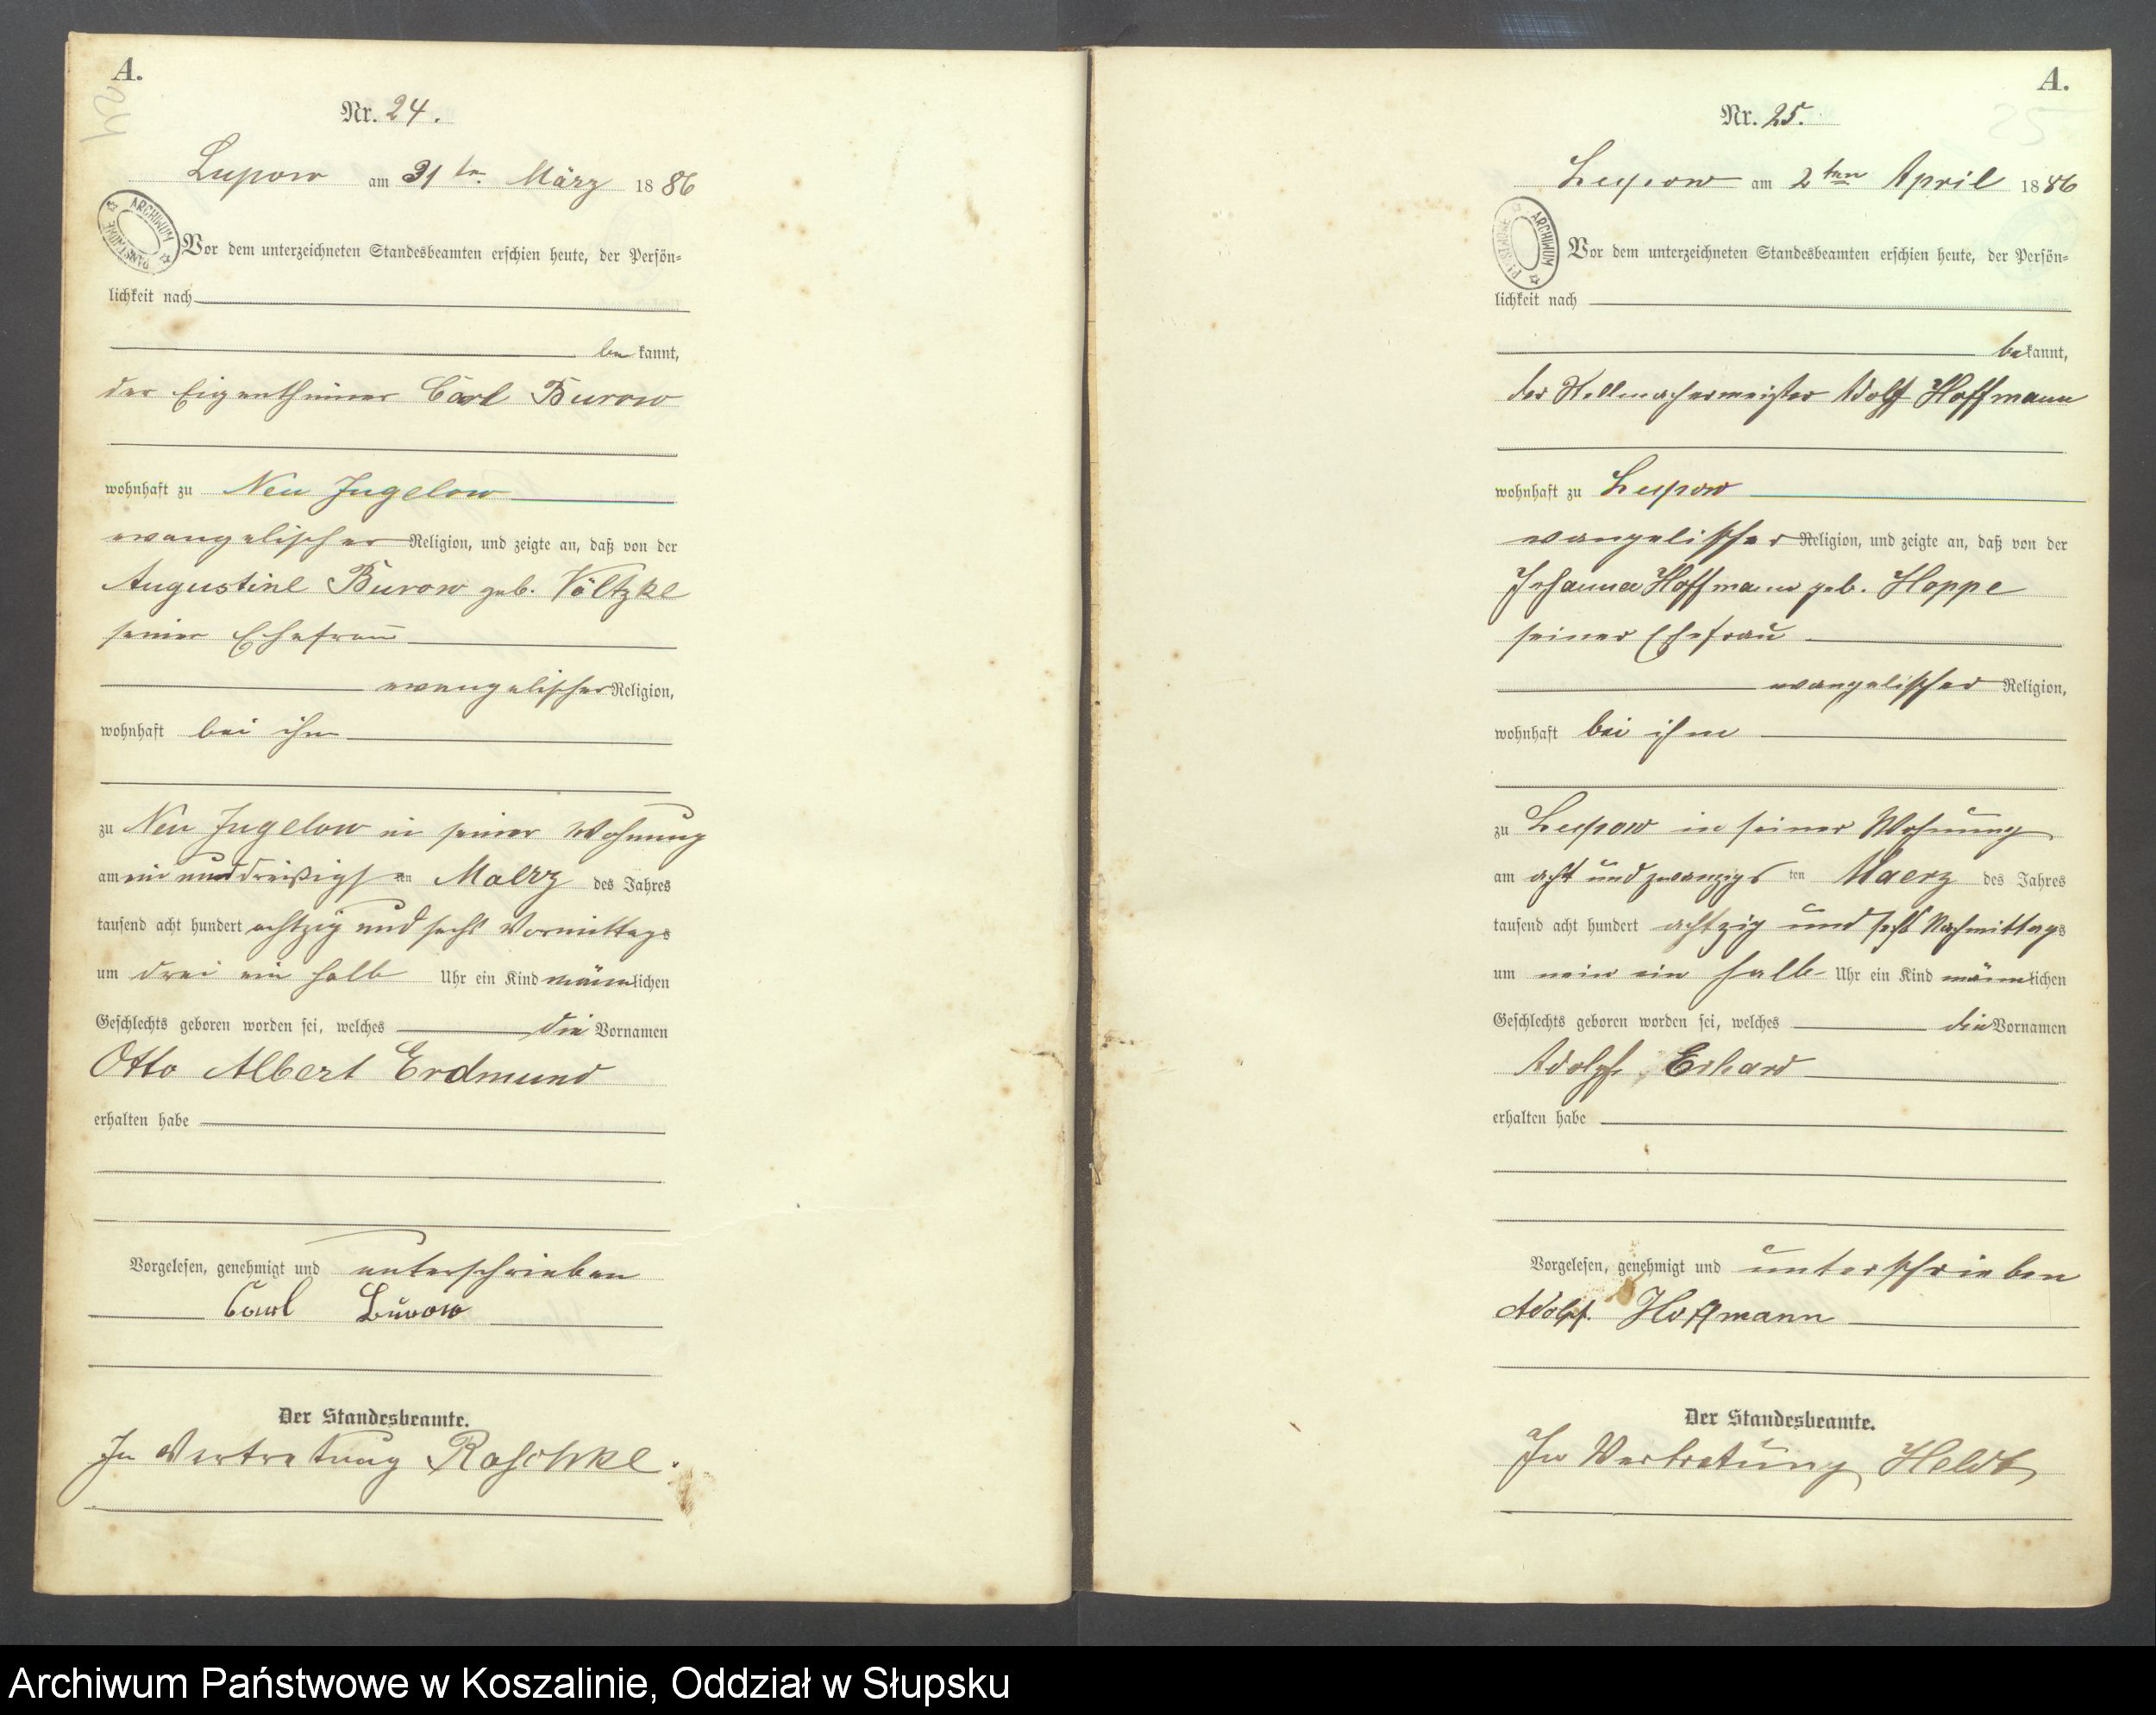 A.
24
Nr. 24.
Lupow am 31ten März 1886
ARCHIWUM PAŃSTWOWE
Vor dem unterzeichneten Standesbeamten erschien heute, der Persön=
lichkeit nach
be kannt,
der Eigenthümer Carl Burow
wohnhaft zu Neu Jugelow
evangelischer Religion, und zeigte an, daß von der
Augustine Burow geb. Völtzke
seiner Ehefrau
evangelischer Religion,
wohnhaft bei ihm
zu Neu Jugelow in seiner Wohnung
am ein und dreißigsten Maerz des Jahres
tausend acht hundert achtzig und sechs Vormittags
um drei ein halb Uhr ein Kind männlichen
Geschlechts geboren worden sei, welches die Vornamen
Otto Albert Erdmund
erhalten habe
Vorgelesen, genehmigt und unterschrieben
Carl Burow
Der Standesbeamte.
In Vertretung Raschke.
A.
25
Nr. 25.
Lupow am 2ten April 1886
ARCHIWUM PAŃSTWOWE
Vor dem unterzeichneten Standesbeamten erschien heute, der Persön=
lichkeit nach
bekannt,
der Stellmachermeister Adolf Hoffmann
wohnhaft zu Lupow
evangelischer Religion, und zeigte an, daß von der
Johanna Hoffmann geb. Hoppe
seiner Ehefrau
evangelischer Religion,
wohnhaft bei ihm
zu Lupow in seiner Wohnung
am acht und zwanzigsten Maerz des Jahres
tausend acht hundert achtzig und sechs Nachmittags
um nein ein halb Uhr ein Kind männlichen
Geschlechts geboren worden sei, welches die Vornamen
Adolph Erhard
erhalten habe
Vorgelesen, genehmigt und unterschrieben
Adolf Hoffmann
Der Standesbeamte.
In Vertretung Heldt
Archiwum Państwowe w Koszalinie, Oddział w Słupsku